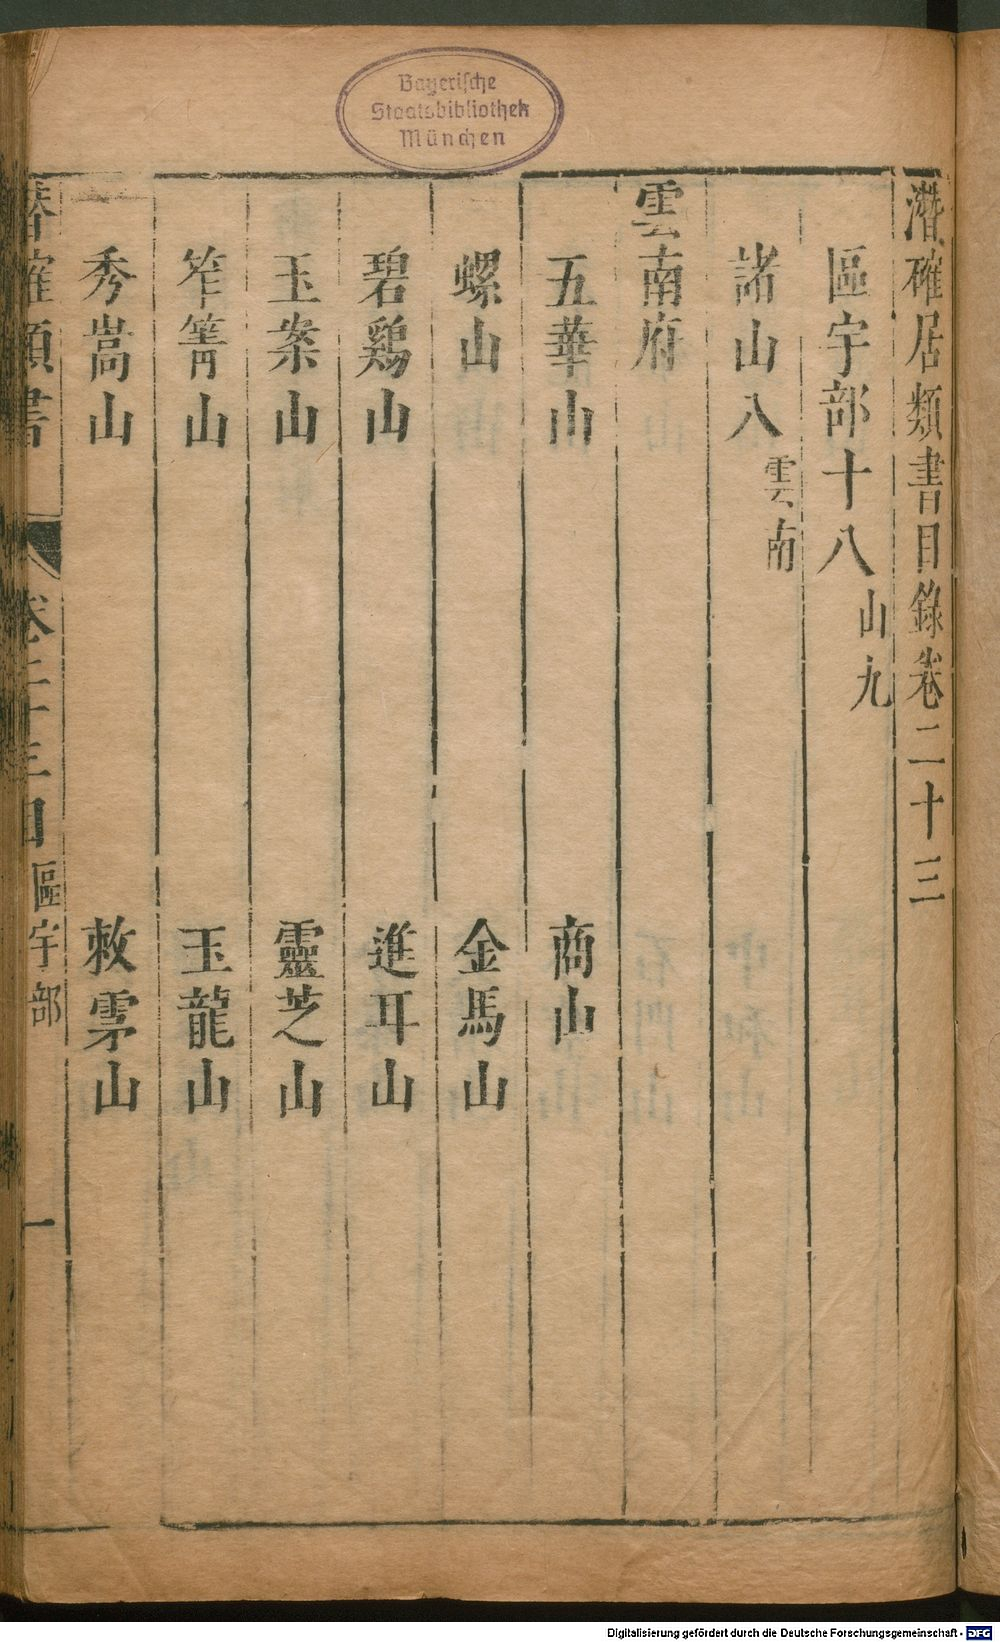 Bayerische
Staatsbibliothek
München
潛確居類書目錄卷二十三
區宇部十八 山九
諸山八 雲南
雲南府
五華山 商山
螺山 金馬山
碧鷄山 進耳山
玉案山 靈芝山
笮箐山 玉龍山
秀嵩山 敕雩山
潛確類書 卷二十三目 區宇部 一
Digitalisierung gefördert durch die Deutsche Forschungsgemeinschaft - DFG